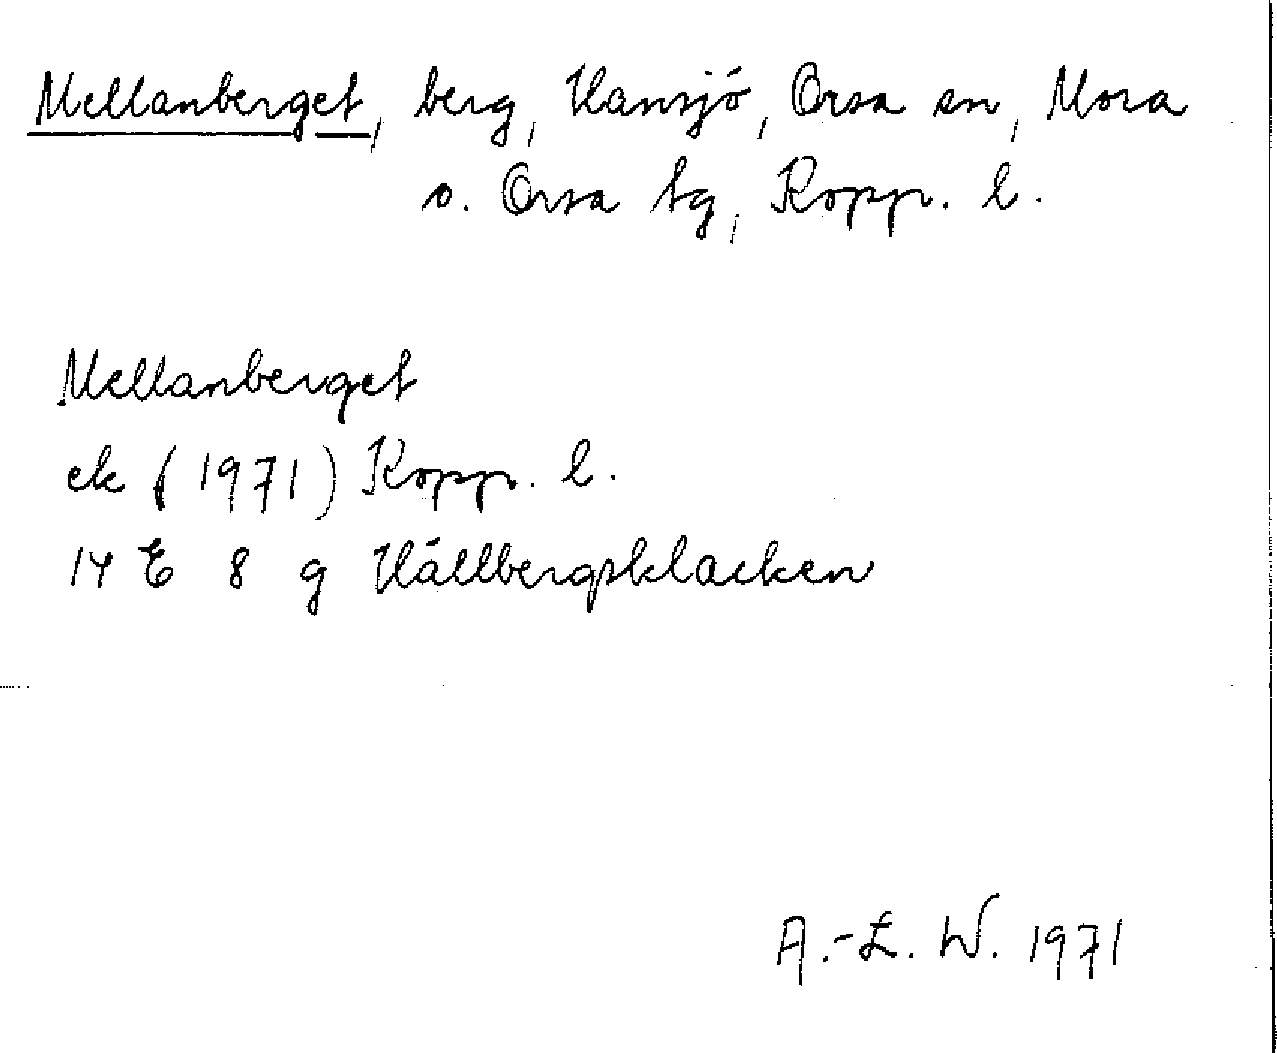 Mellanberget, berg, Hansjö, Orsa sn, Mora
o. Orsa tg, Kopp. l.
Mellanberget
ek (1971) Kopp. l.
14 E 8 g Hållbergsklacken
A.-L. W. 1971